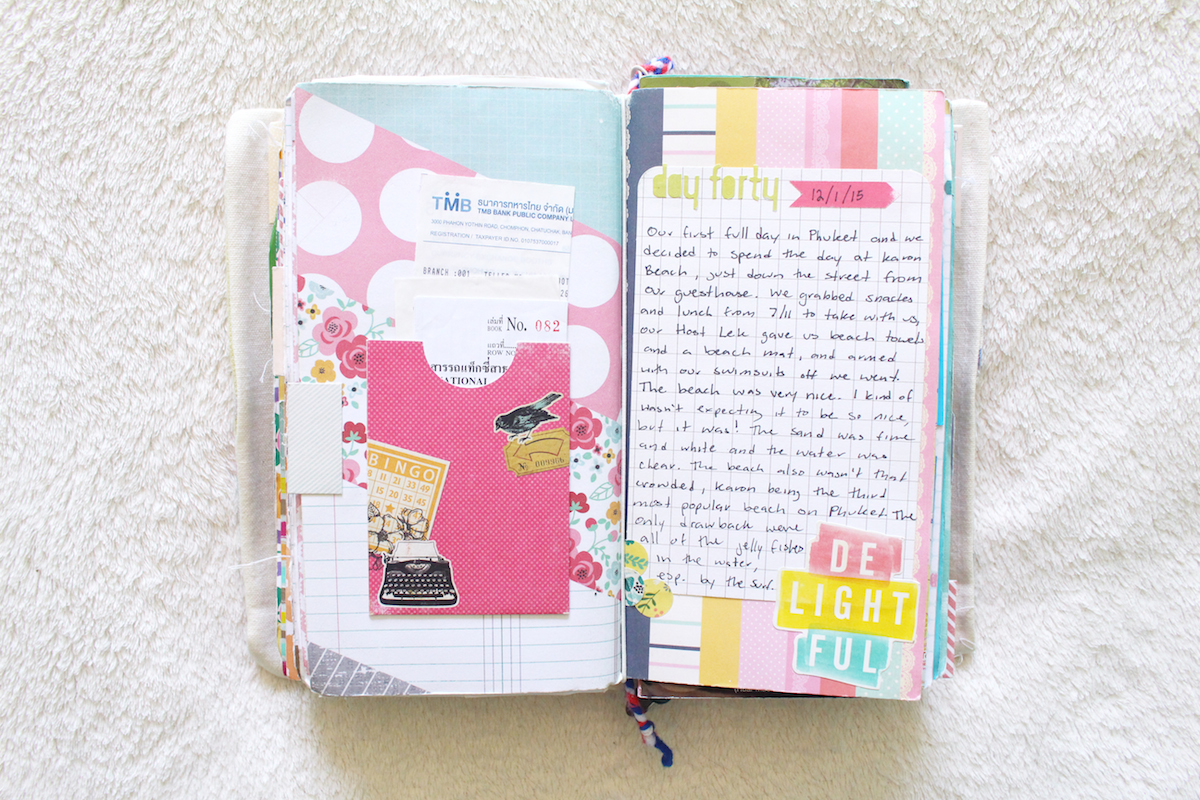 TMB ธนาคารทหารไทย จำกัด (
TMB BANK PUBLIC COMPANY
3000 PHAHON YOTHIN ROAD, CHOMPHON, CHATUCHAK,
REGISTRATION / TAXPAYER ID NO. 0107537000017
BRANCH :001
เล่มที่
BOOK No. 082
ROW NO
NATIONAL
BINGO
8 11 21 33 49
15 20 35 45
No 009906
day forty
12/1/15
Our first full day in Phuket and we
decided to spend the day at Karon
Beach, just down the street from
our guesthouse. We grabbed snacks
and lunch from 7/11 to take with us,
our Host Lek gave us beach towels
and a beach mat, and armed
with our swimsuits off we went.
The beach was very nice. I kind of
wasn't expecting it to be so nice,
but it was! The sand was fine
and white and the water was
clear. The beach also wasn't that
crowded, Karon being the third
most popular beach on Phuket. The
only drawback were
all of the jelly fishes
in the water,
esp. by the surf.
DE
LIGHT
FUL